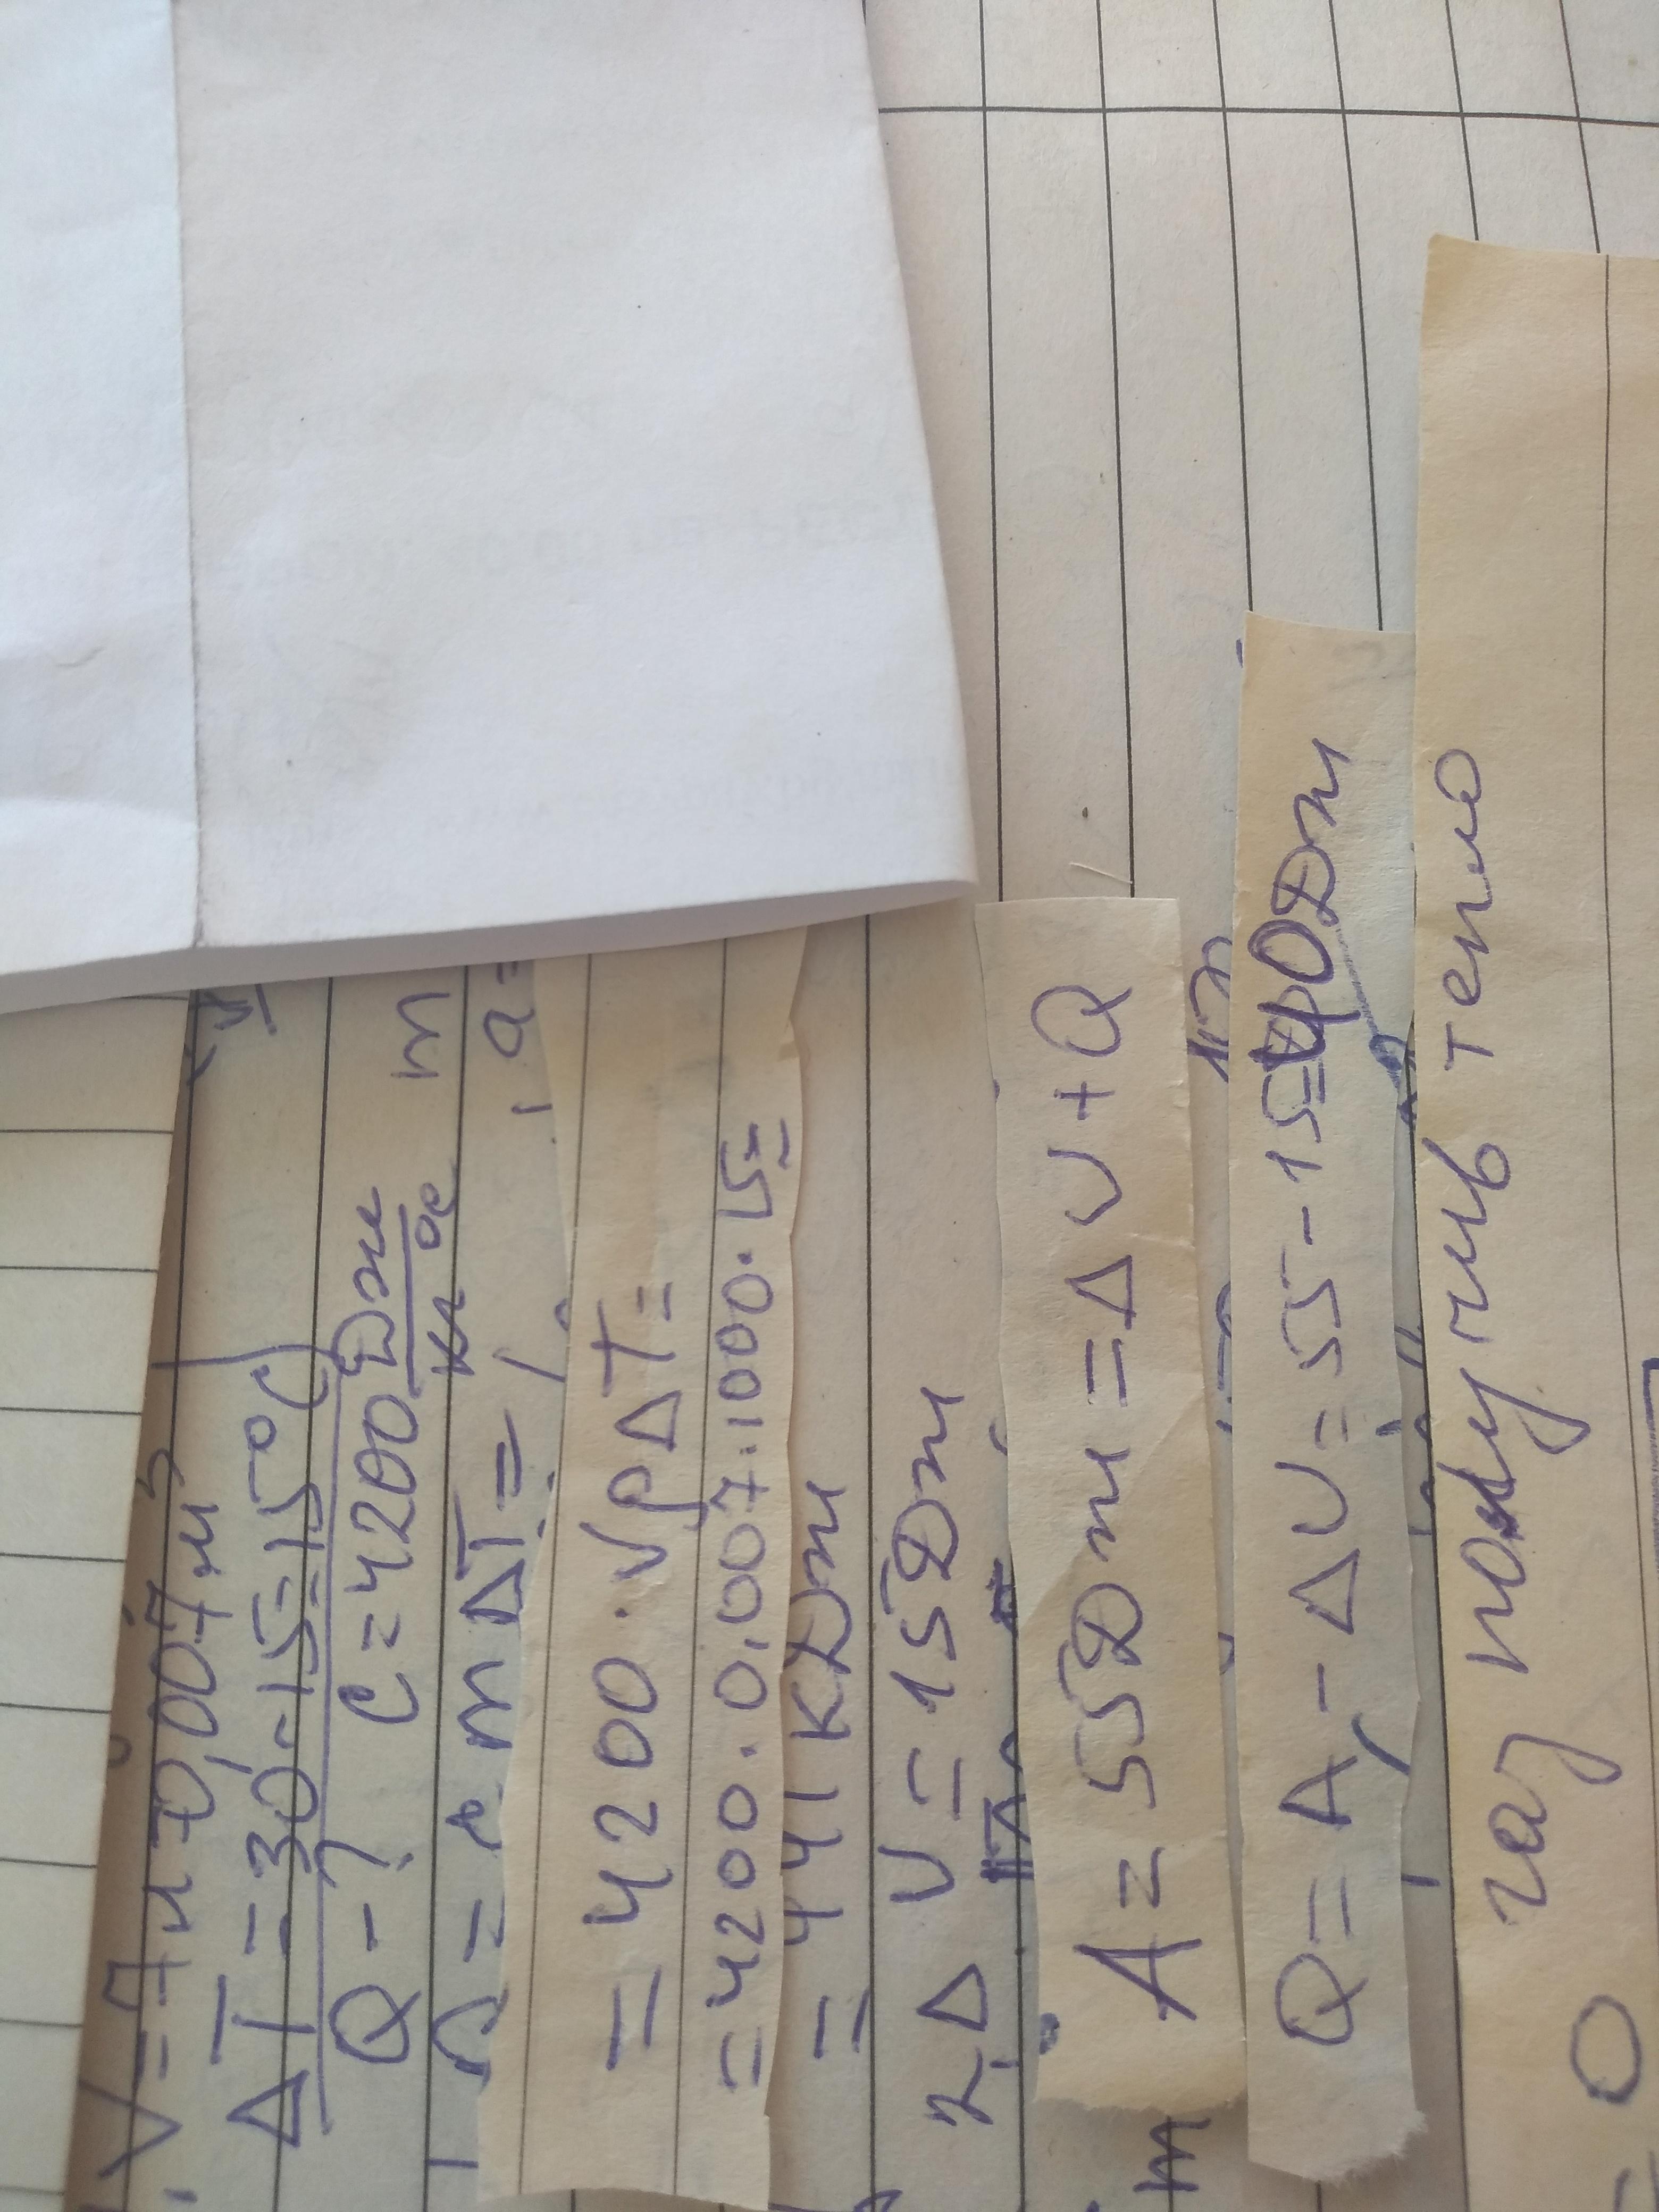 V=7л=0,007м³
ΔT=30-15=15°C
Q-? C=4200 Дж/кг°C m
Q=cmΔT=
=4200·VρΔT=
=4200·0,007·1000·15=
=441кДж
2 ΔU=15Дж
A=55Дж=ΔU+Q
Q=A-ΔU=55-15=40Дж
газ получив тепло